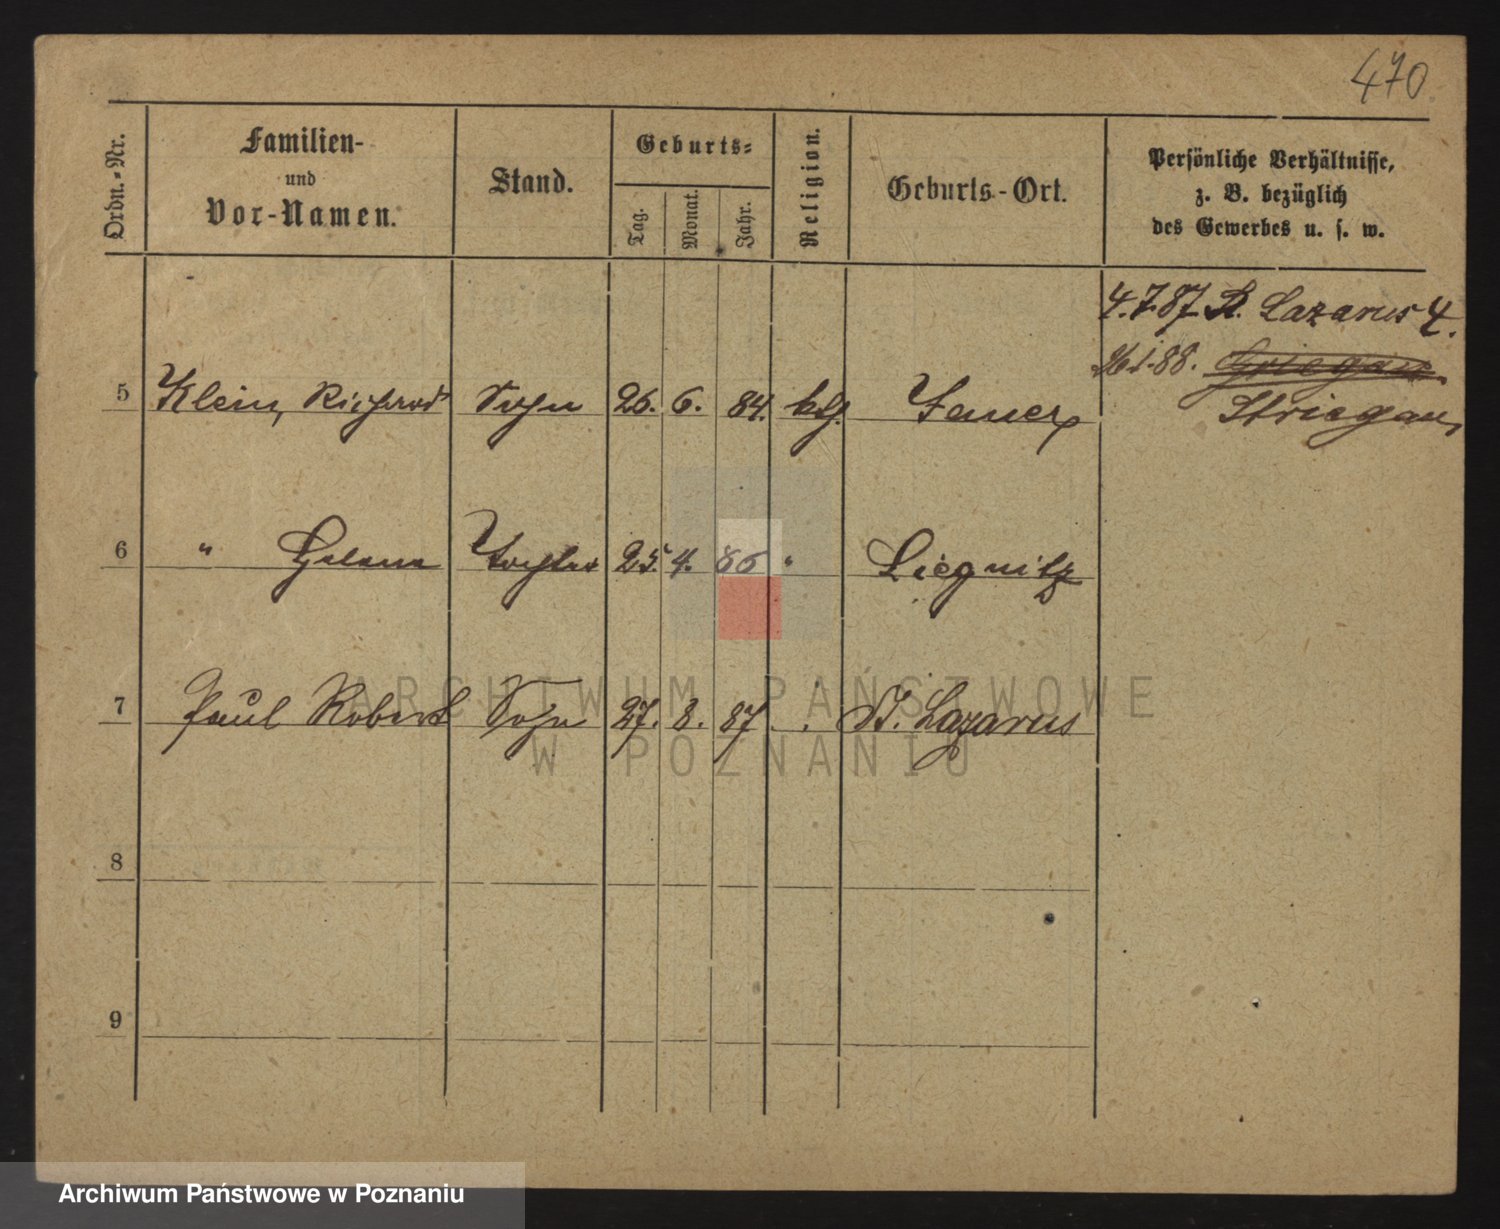 470
Ordn.-Nr.
Familien-
und
Vor-Namen.
Stand.
Geburts-
Tag.
Monat.
Jahr.
Religion.
Geburts-Ort.
Persönliche Verhältnisse,
z. B. bezüglich
des Gewerbes u. s. w.
4.7.87 St. Lazarus 4.
26.1.88. Striegau
Striegau,
5 Klein, Richard Sohn 26. 6. 84. kth. Jauer
6 " Helene Tochter 25. 4. 86 " Liegnitz
7 Paul Robert Sohn 27. 8. 87 . . St. Lazarus
8
9
ARCHIWUM PAŃSTWOWE
W POZNANIU
Archiwum Państwowe w Poznaniu